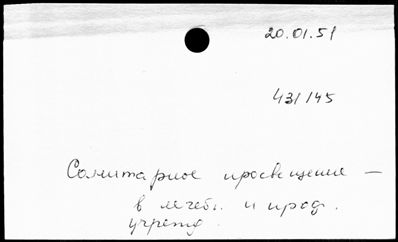 20.01.51
431/145
Санитарное просвещение —
в лечебн. и проф.
учрежд.